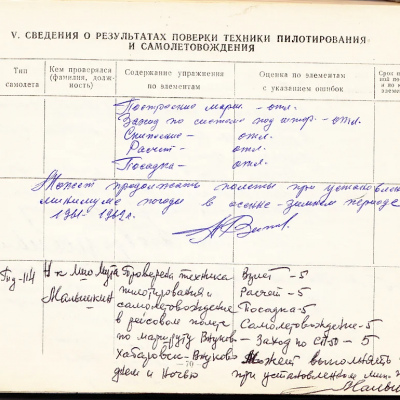 V. СВЕДЕНИЯ О РЕЗУЛЬТАТАХ ПОВЕРКИ ТЕХНИКИ ПИЛОТИРОВАНИЯ
И САМОЛЕТОВОЖДЕНИЯ
Тип самолета
Кем проверялся (фамилия, должность)
Содержание упражнения по элементам
Оценка по элементам с указанием ошибок
Построение марш. - отл.
Заход по системе под штор. - отл.
Снижение - отл.
Расчет - отл.
Посадка - отл.
Может продолжать полеты при установлен
минимуме погоды в осенне-зимнем периоде
1961-1962г.
Проверка техника Взлет - 5
Малышкин пилотирования и Расчет - 5
самолетовождения Посадка - 5
в рейсовом полете Самолетовождение - 5
по маршруту Внуково - Заход по СП-50 - 5
Хабаровск-Внуково Может выполнять
70
днем и ночью при установленном мин.